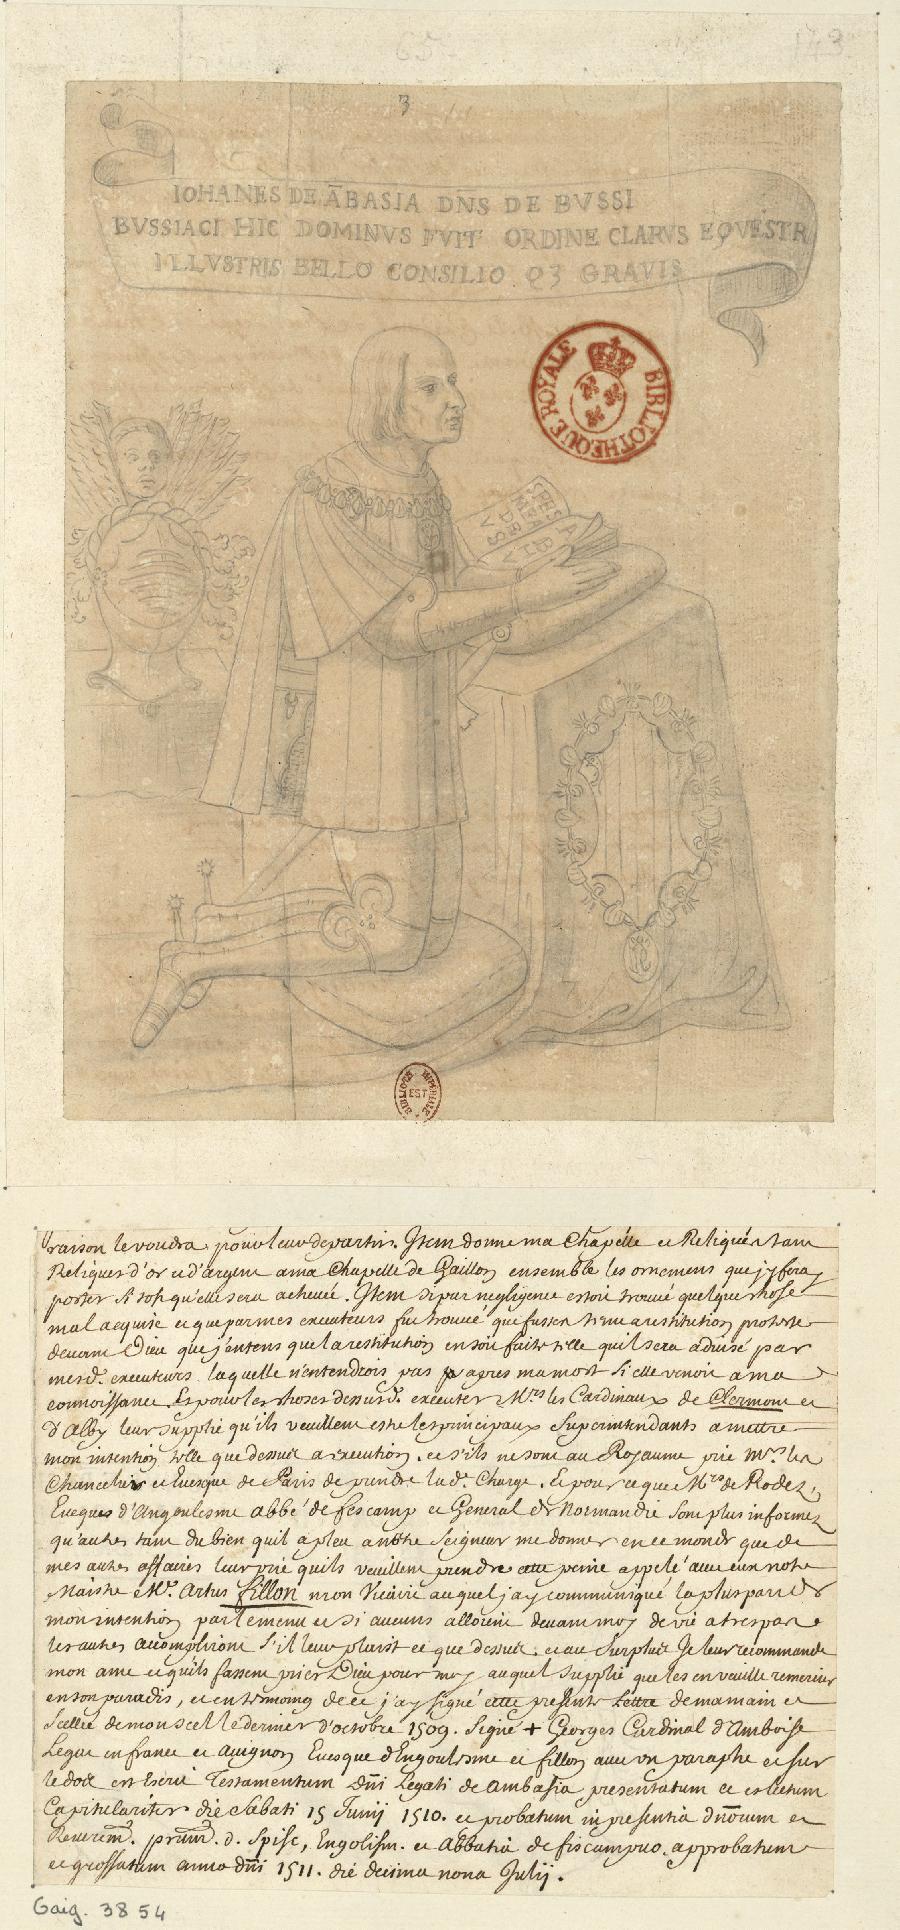 65
143
3
IOHANES DE ĀBASIA DN̄S DE BVSSI
BVSSIACI HIC DOMINVS FVIT ORDINE CLARVS EQVESTR
ILLVSTRIS BELLO CONSILIO Q3 GRAVIS
BIBLIOTHEQUE ROYALE
BIBLIOTH IMPERIALE
EST
raison le voudra pour leur departir. Item donne ma Chapelle et Reliques tant
Reliques d'or et d'argent a ma Chapelle de Gaillon ensemble les ornemens que j'y feray
porter si tost qu'elle sera achevée. Item si par negligence estoit trouvé quelque chose
mal acquise et que par mes executeurs fut trouvé que fussen tenu a restitution proteste
devant Dieu que j'entens que la restitution en soit faite telle quil sera advisé par
mesd. executeurs laquelle n'entendrois pas apres ma mort si elle venoit a ma
connoissance. Et pour les choses dessusd. executer Mrs les Cardinaux de Clermont et
d'Alby leur supplie qu'ils veuillent estre les principaux Superintendants a mettre
mon intention telle que dessus a execution. et s'ils ne sont au Royaume prie Mrs les
Chancelier et Evesque de Paris de prendre lad. Charge. Et pour ce que Mrs de Rodez,
Evesques d'Angoulesme abbé de fescamp et General de Normandie sont plus informez
qu'autres tant du bien quil a pleu a notre Seigneur me donner en ce monde que de
mes autres affaires leur prie quils veuillent prendre cette peine appelé avec eux notre
Maistre Mr. Artus fillon mon Vicaire auquel j'ay communiqué la plus part de
mon intention par le menu et si aucuns alloient devant moy de vie a trespas
les autres accompliront s'il leur plaist ce que dessus. et au Surplus Je leur recommande
mon ame et quils fassent prier Dieu pour moy auquel supplie que les en veuille remercier
en son paradis, et en tesmoing de ce j'ay signé cette presente Lettre de ma main et
Scellée de mon scel le dernier d'octobre 1509. Signé + Georges Cardinal d'Amboise
Legat en france et avignon Evesque d'Engoulesme et fillon avec un paraphe et sur
le dos est Escrit Testamentum Dn̄i Legati de Ambasia presentatum et electum
Capitulariter die Sabati 15 Junij 1510. et probatum in presentia dnōrum et
Reverem̄. d. Engolism. et Abbatia de fiscampuo. approbatum
et grossatum anno dn̄i 1511. die decima nona Julij.
Gaig. 3854